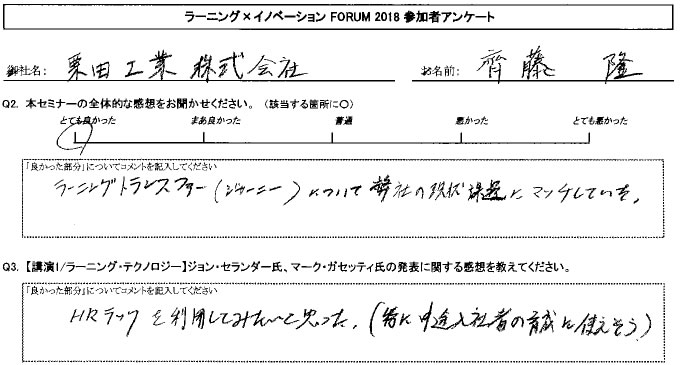 ラーニング×イノベーション FORUM 2018 参加者アンケート
御社名: 栗田工業 株式会社 お名前: 齊藤 隆
Q2. 本セミナーの全体的な感想をお聞かせください。 （該当する箇所に○）
とても良かった まあ良かった 普通 悪かった とても悪かった
「良かった部分」についてコメントを記入してください
ラーニングトランスファー（ジャーニー）について弊社の現状課題にマッチしていた。
Q3. 【講演1/ラーニング・テクノロジー】ジョン・セランダー氏、マーク・ガセッティ氏の発表に関する感想を教えてください。
「良かった部分」についてコメントを記入してください
HRテックを利用してみたいと思った。（特に中途入社者の育成に使えそう）